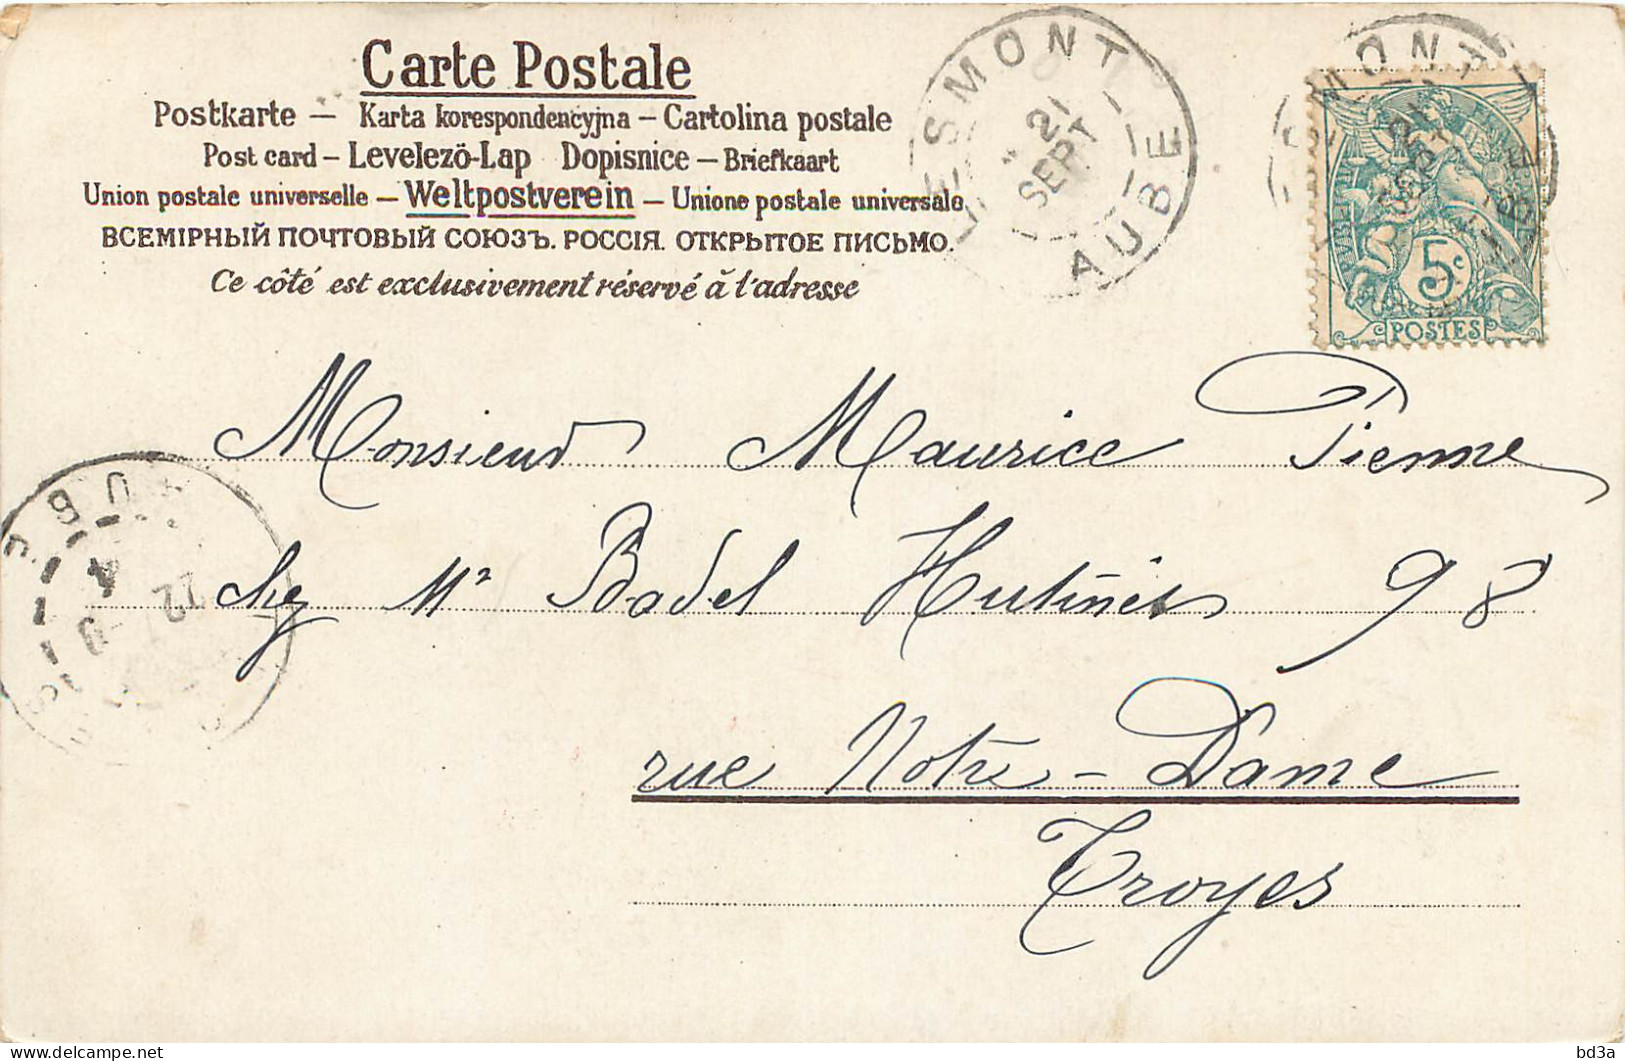 Carte Postale
Postkarte — Karta korespondencyjna — Cartolina postale
Post card — Levelezö-Lap Dopisnice — Briefkaart
Union postale universelle — Weltpostverein — Unione postale universale
ВСЕМІРНЫЙ ПОЧТОВЫЙ СОЮЗЪ. РОССІЯ. ОТКРЫТОЕ ПИСЬМО.
Ce côté est exclusivement réservé à l'adresse
ESMONT
21
SEPT
AUBE
MONT
21
5c
POSTES
Monsieur Maurice Pienne
chez Mr Badel Hutinet 98
rue Notre-Dame
Troyes
AUBE
22